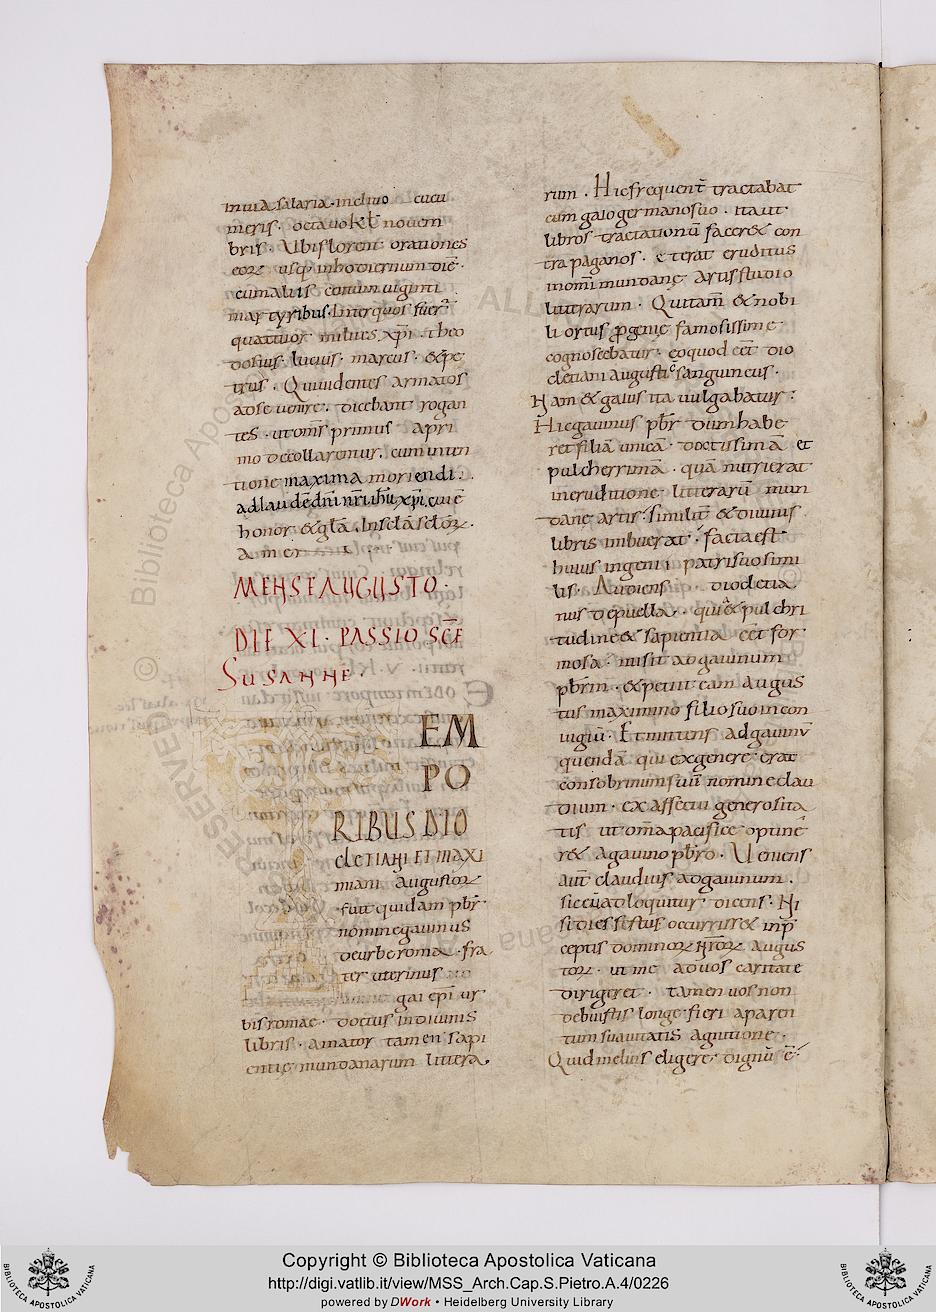 inuia salaria. inclino cucu
meris. octauo kł nouem
bris. Ubi florent orationes
eoꝝ usq; inhodiernum diē.
cum aliis comm uiginti.
martyribus. Interquos fuer̄.
quattuor milites xp̄i. theo
dosius. lucius. marcus. & pe
trus. Qui uidentes armatos
adse uenire. dicebant rogan
tes. ut om̄s primus apri
mo decollarentur. cum inten
tione maxima moriendi.
ad laudē dn̄i nr̄i ihū xp̄i, cui ē
honor & gl̄a. In scl̄a scl̄oꝝ.
amen
MENSE AUGUSTO.
DIE XI. PASSIO SCE
SUSANNE.
EM
PO
RIBUS DIO
cletiani et maxi
miani augustoꝝ
fuit quidam pbr̄
nomine gauinus
deurbe roma. fra
ter uterinus
gai epi ur
bis romae. doctus indiuinis
libris. amator tamen sapi
entię mundanarum littera
rum. Hic frequent̄ tractabat
cum gaio germano suo. ita ut
libros tractationū facer& con
tra paganos. et erat eruditus
in om̄i mundanę artis studio
litterarum. Qui tam̄ & nobi
li ortus progenie famosissime
cognoscebatur. eo quod eēt dio
cletiani augusti cōsanguineus.
Nam & gaius ita uulgabatur:
Hic gauinus pbr̄ dum habe
ret filiā unicā. doctissimā et
pulcherrimā. quā nutrierat
in eruditione litterarū mun
danę artis. similit̄ & diuinis
libris imbuerat. facta est
huius ingenii patri suo simi
lis. Audiens dioclecia
nus de puella. quia & pulchri
tudine & sapientia eēt for
mosa. misit ad gauinum
pbr̄m. & petiit eam augus
tus maximino filio suo in con
iugiū. Et mittens ad gauinū
quendā qui ex genere erat
consobrinum suū nomine clau
dium. ex affectu generosita
tis ut om̄a pacifice optine
r& a gauino pbr̄o. Ueniens
aut̄ claudius ad gauinum.
sic eū adloquitur dicens. Ni
si dies festus occurriss& in p̄
ceptis dominoꝝ nr̄oꝝ augus
toꝝ. ut me ad uos caritate
dirigeret. tamen uos non
debuistis longe fieri aparen
tum suauitatis agnitione.
Quid melius eligere dignū ē
Copyright © Biblioteca Apostolica Vaticana
http://digi.vatlib.it/view/MSS_Arch.Cap.S.Pietro.A.4/0226
powered by DWork • Heidelberg University Library